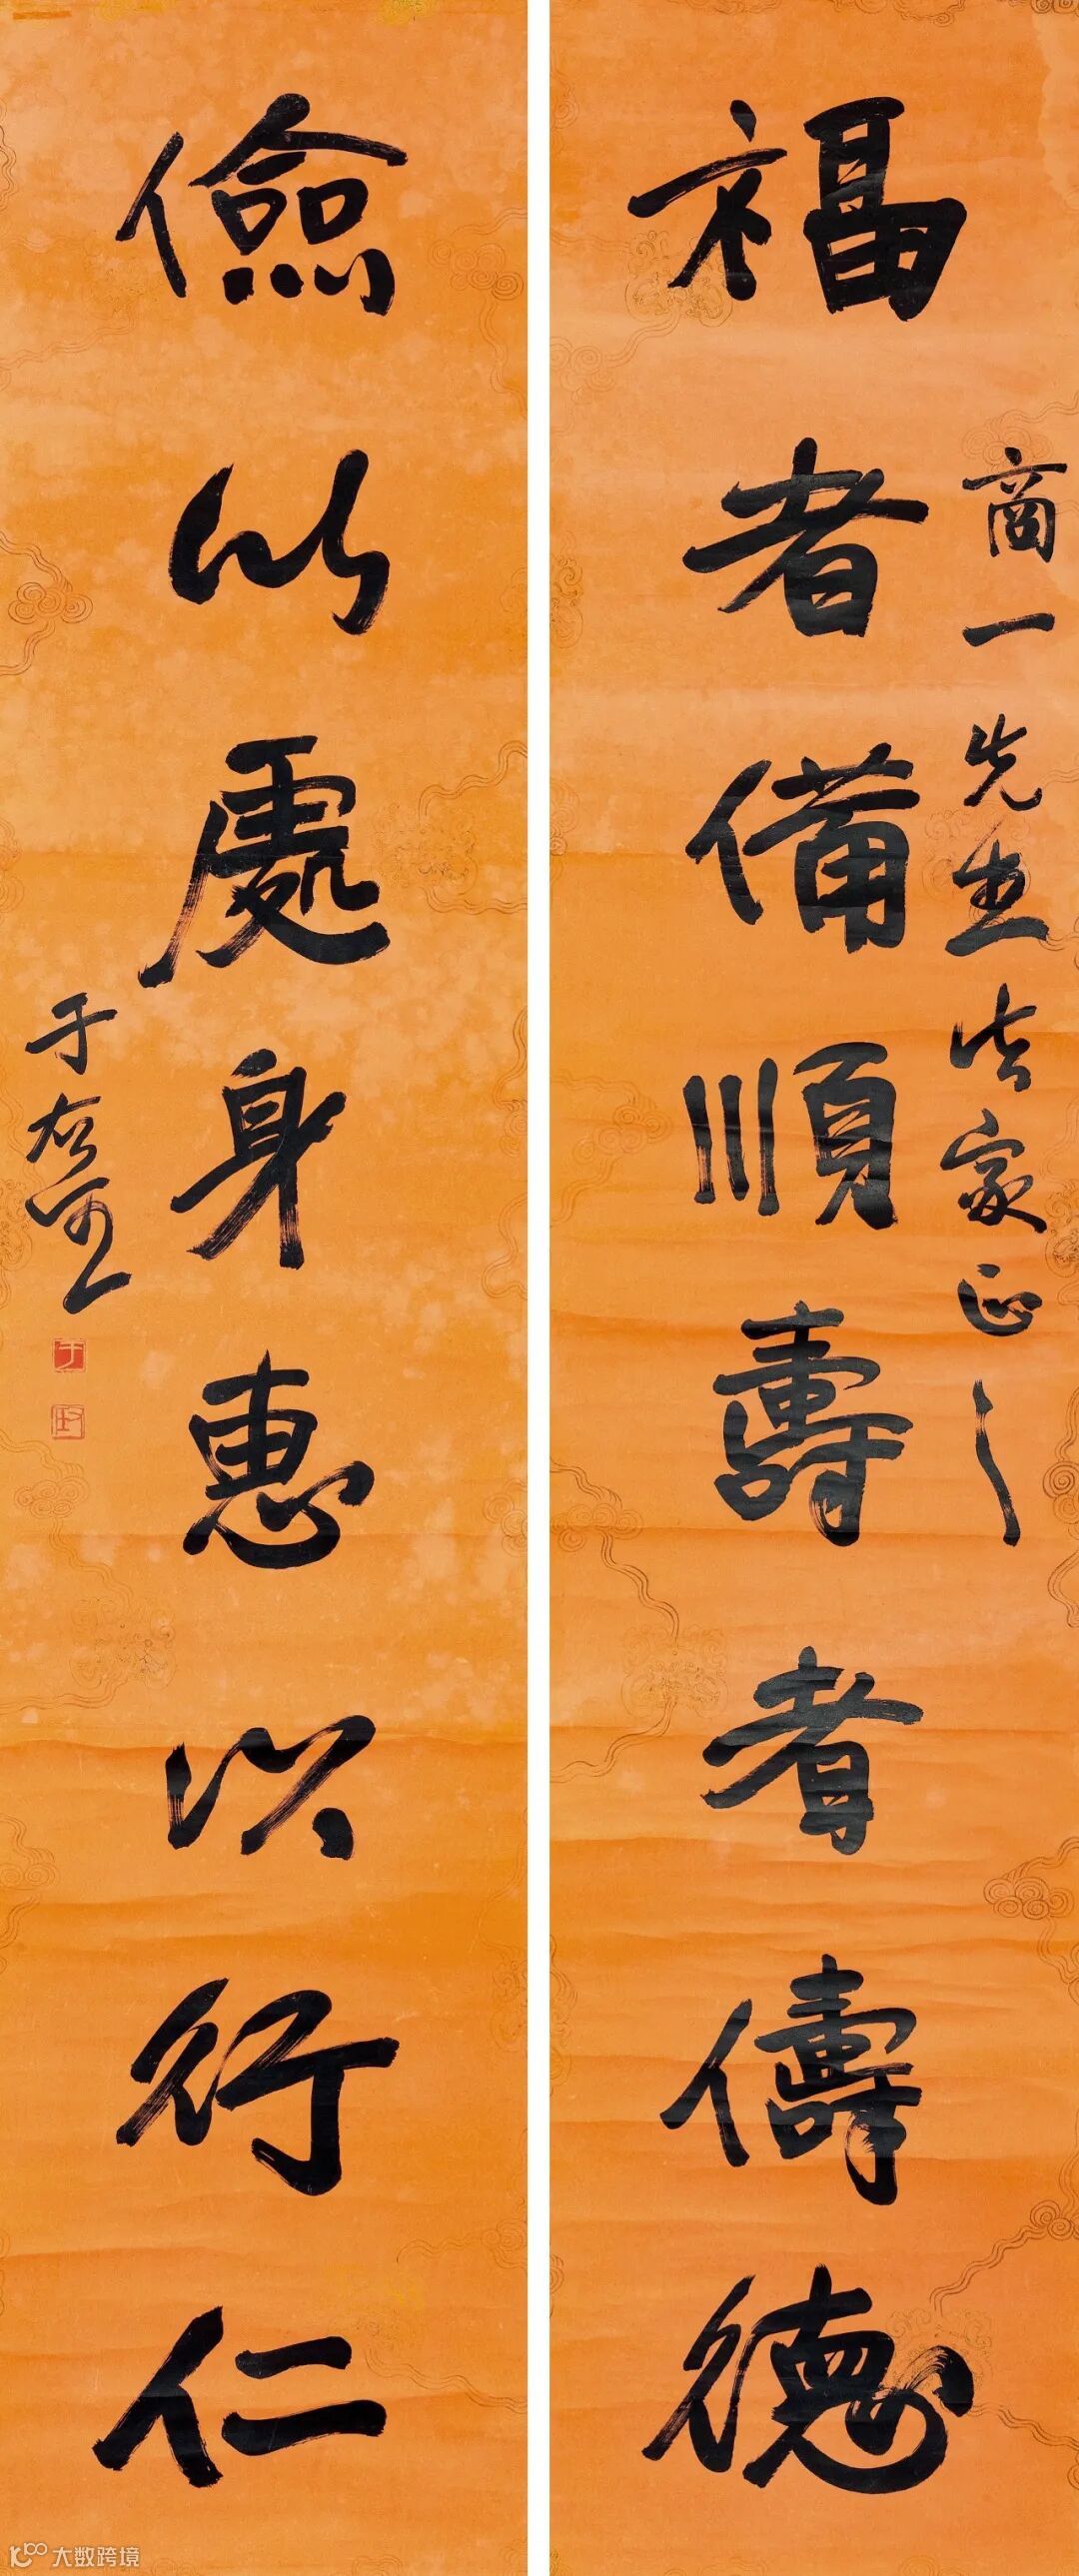 商一先生法家正之
福者備順壽者儔德
儉以處身惠以行仁
于右
于
大数跨境